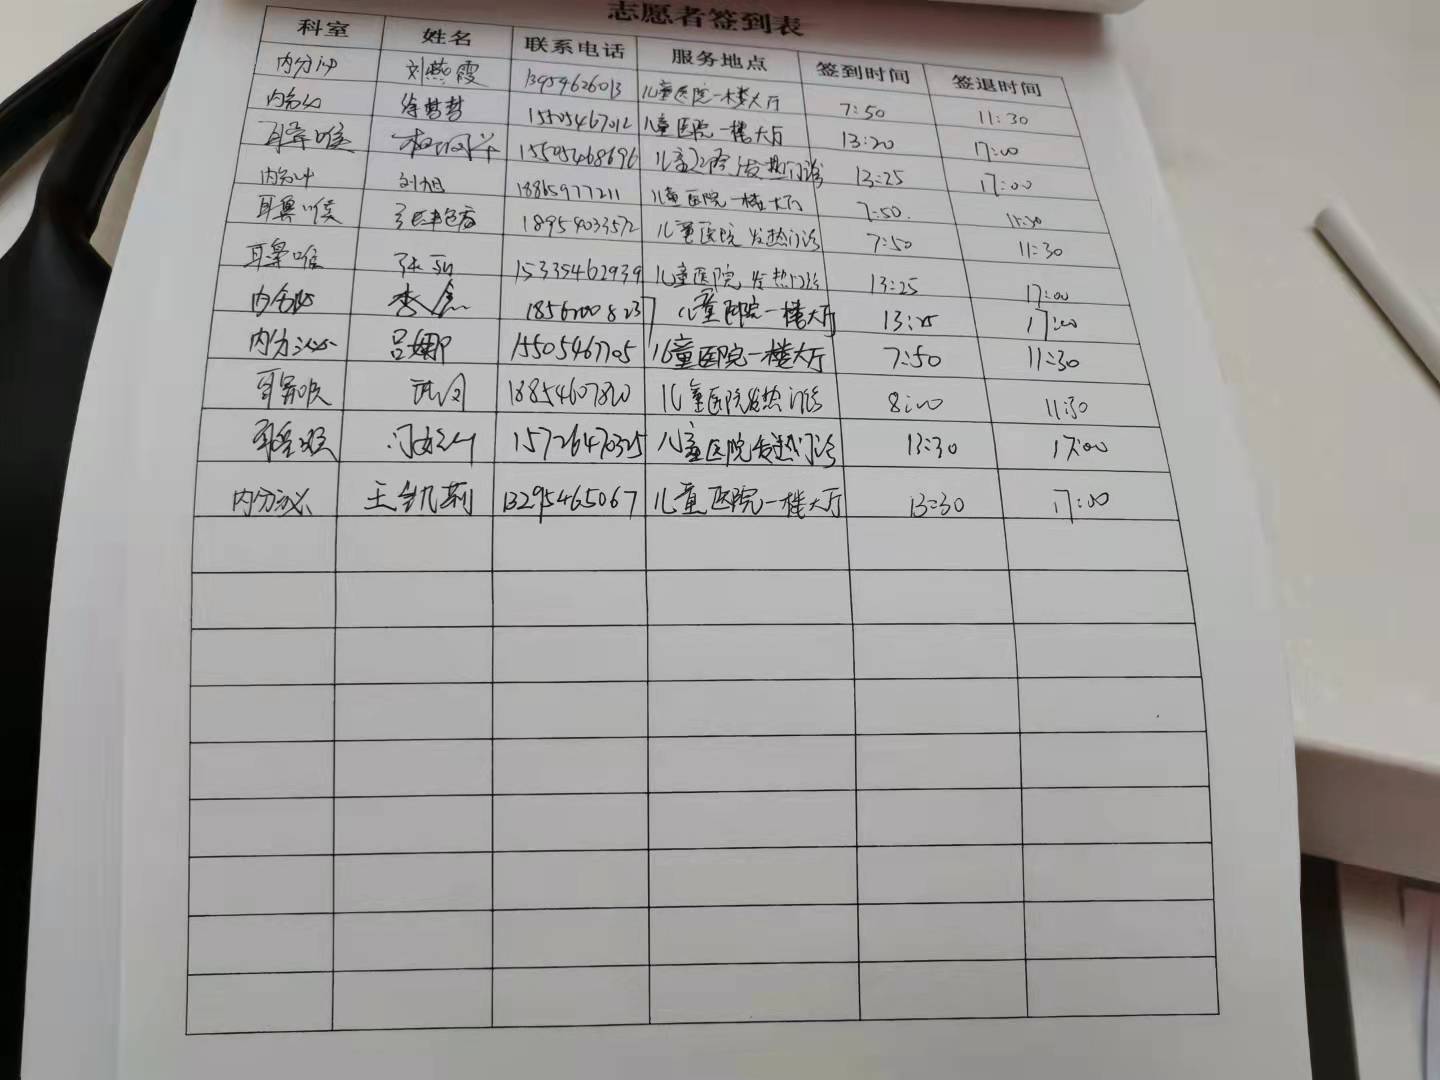 志愿者签到表
科室 姓名 联系电话 服务地点 签到时间 签退时间
内分泌 刘燕霞 13954626013 儿童医院一楼大厅 7:50 11:30
内分泌 徐梦梦 15505467012 儿童医院一楼大厅 13:20 17:00
耳鼻喉 15505468696 儿童医院发热门诊 13:25 17:00
内分泌 刘旭 18865977211 儿童医院一楼大厅 7:50 11:30
耳鼻喉 18954033572 儿童医院发热门诊 7:50 11:30
耳鼻喉 15335462939 儿童医院发热门诊 13:25 17:00
内分泌 儿童医院一楼大厅 17:00
内分泌 吕娜 15505467705 儿童医院一楼大厅 7:50 11:30
耳鼻喉 儿童医院发热门诊 8:00 11:30
耳鼻喉 15726470325 儿童医院发热门诊 13:30 17:00
内分泌 王凯莉 13295465067 儿童医院一楼大厅 13:30 17:00